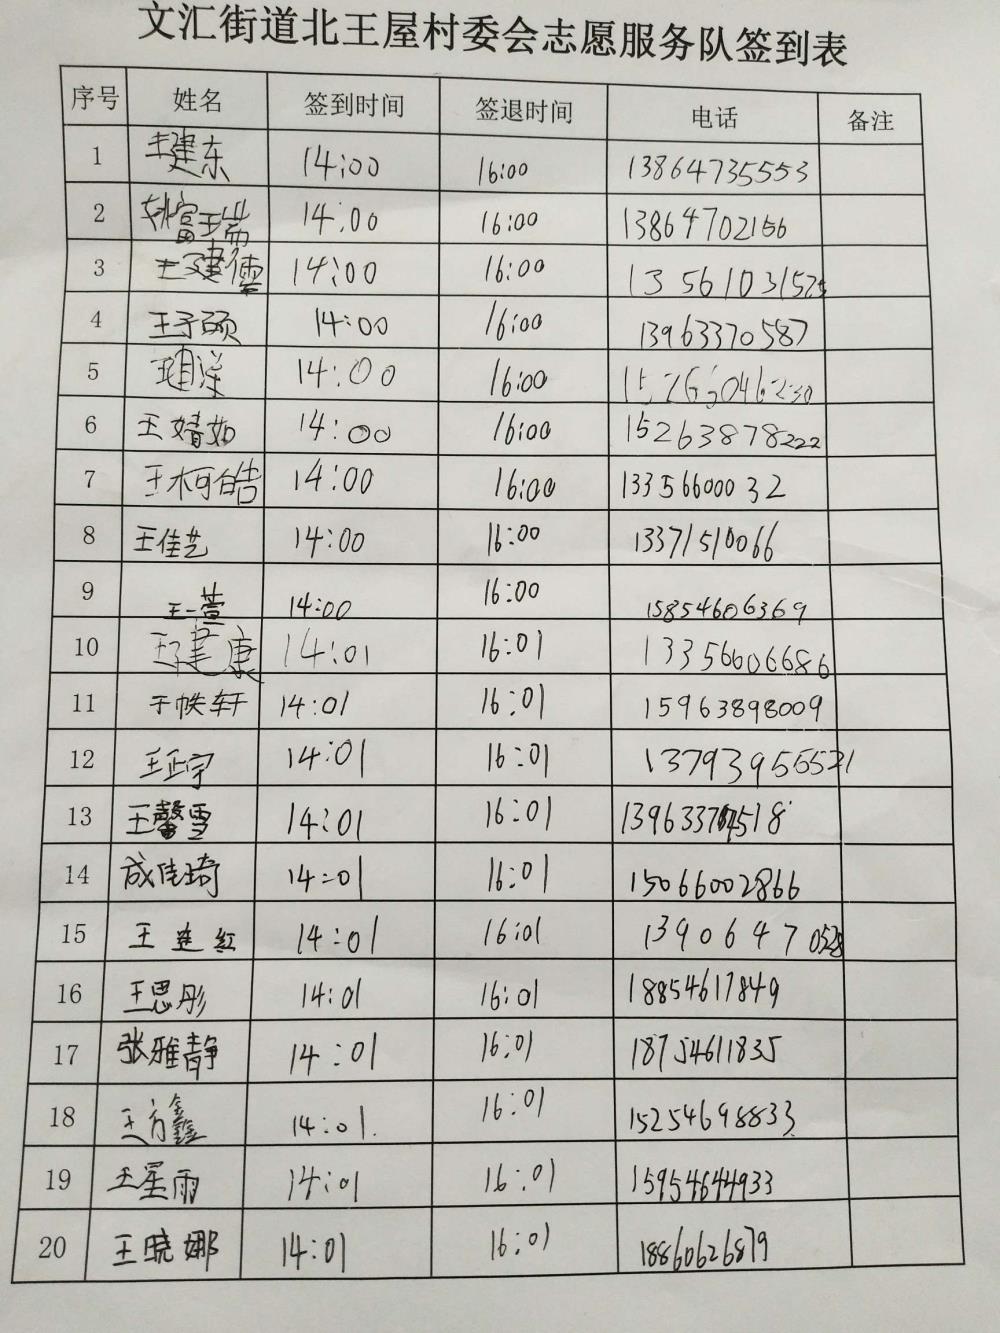 文汇街道北王屋村委会志愿服务队签到表
序号 姓名 签到时间 签退时间 电话 备注
1 王建东 14:00 16:00 13864735553
2 姚富瑞 14:00 16:00 13864702156
3 王建儒 14:00 16:00 13561031525
4 王子硕 14:00 16:00 13963370587
5 14:00 16:00
6 王婧茹 14:00 16:00 15263878222
7 王柯皓 14:00 16:00 13356600032
8 王佳艺 14:00 16:00 13371510066
9 王一萱 14:00 16:00 15854606369
10 王建康 14:01 16:01 13356606686
11 于帙轩 14:01 16:01 15963898009
12 王正宇 14:01 16:01 13793955521
13 王馨雪 14:01 16:01
14 成佳琦 14:01 16:01 15066002866
15 王连红 14:01 16:01 13906470528
16 王思彤 14:01 16:01 18854617849
17 张雅静 14:01 16:01 18754611835
18 王方鑫 14:01. 16:01 15254698833
19 王星雨 14:01 16:01 15954644933
20 王晓娜 14:01 16:01 18860626879